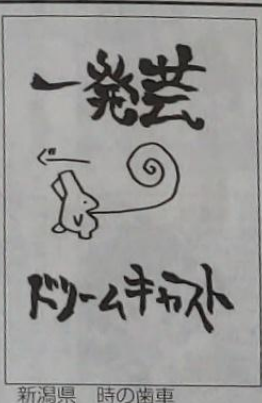 一発芸
ドリームキャスト
新潟県 時の歯車